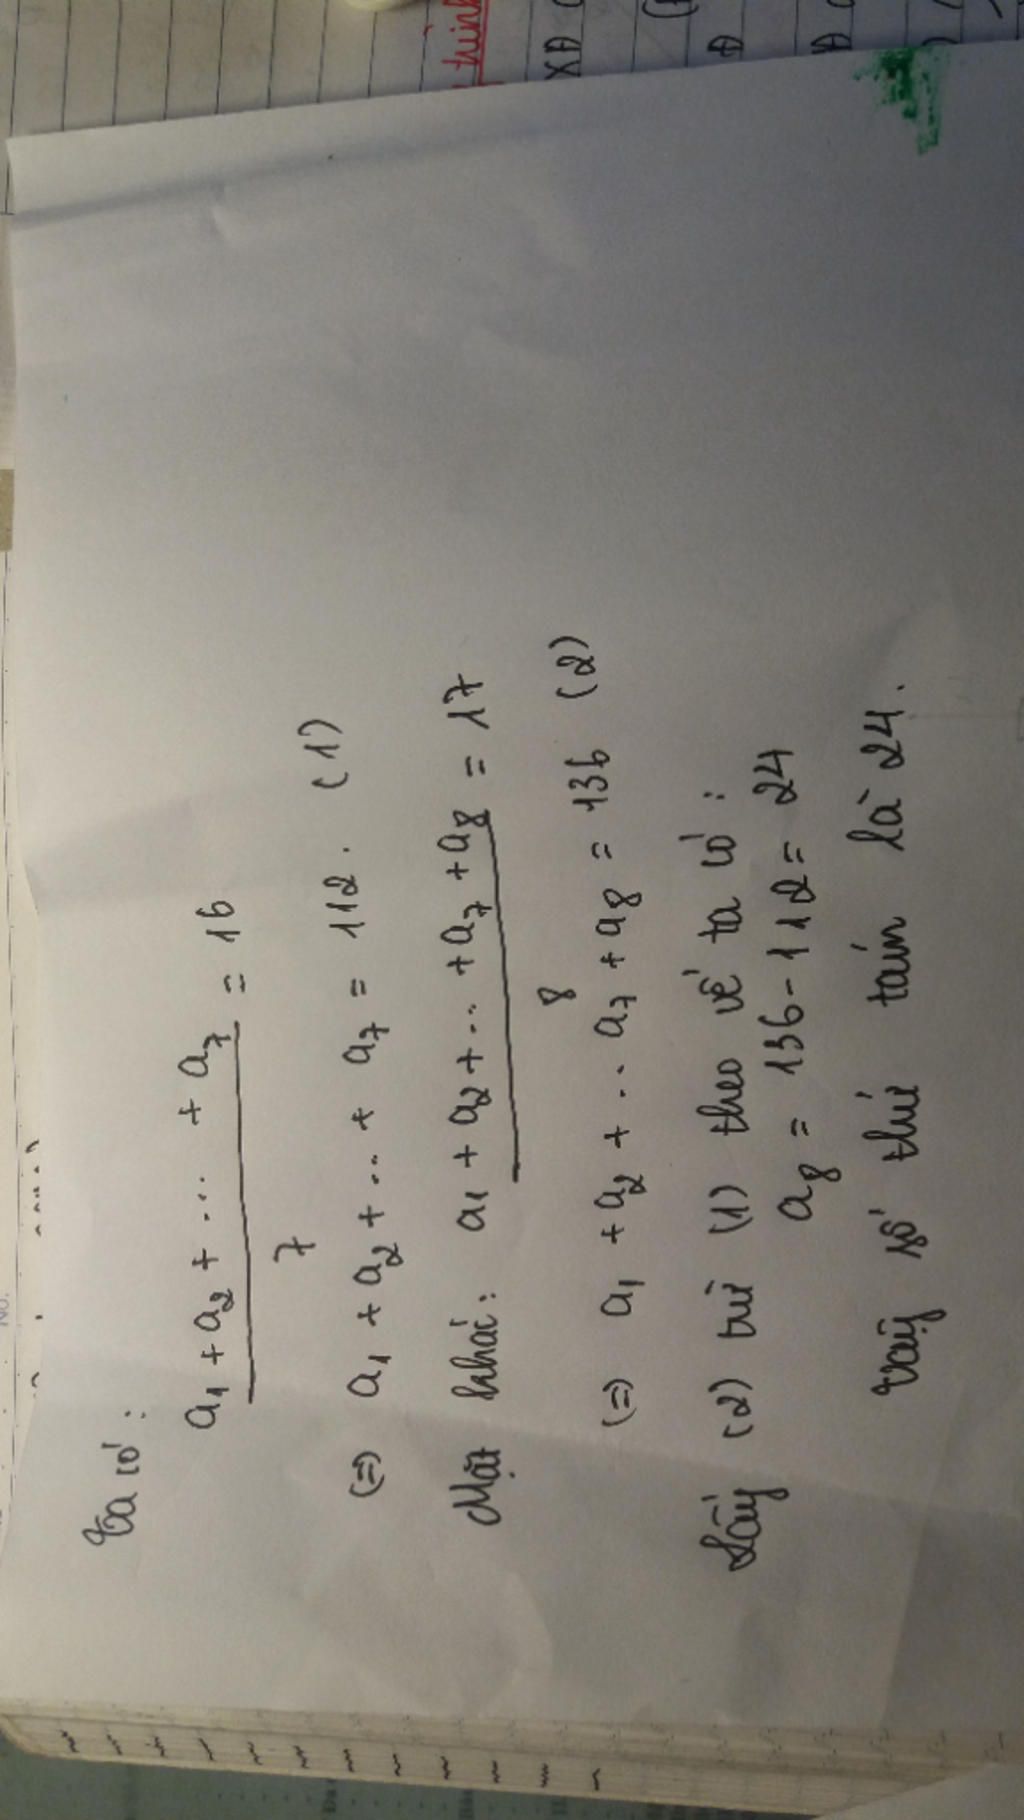 Ta có:
a1 + a2 + ... + a7 = 16
7
(=) a1 + a2 + ... + a7 = 112. (1)
Mặt khác: a1 + a2 + ... + a7 + a8 = 17
8
(=) a1 + a2 + .. a7 + a8 = 136 (2)
Lấy (2) trừ (1) theo vế ta có:
a8 = 136 - 112 = 24
Vậy số thứ tám là 24.
trình